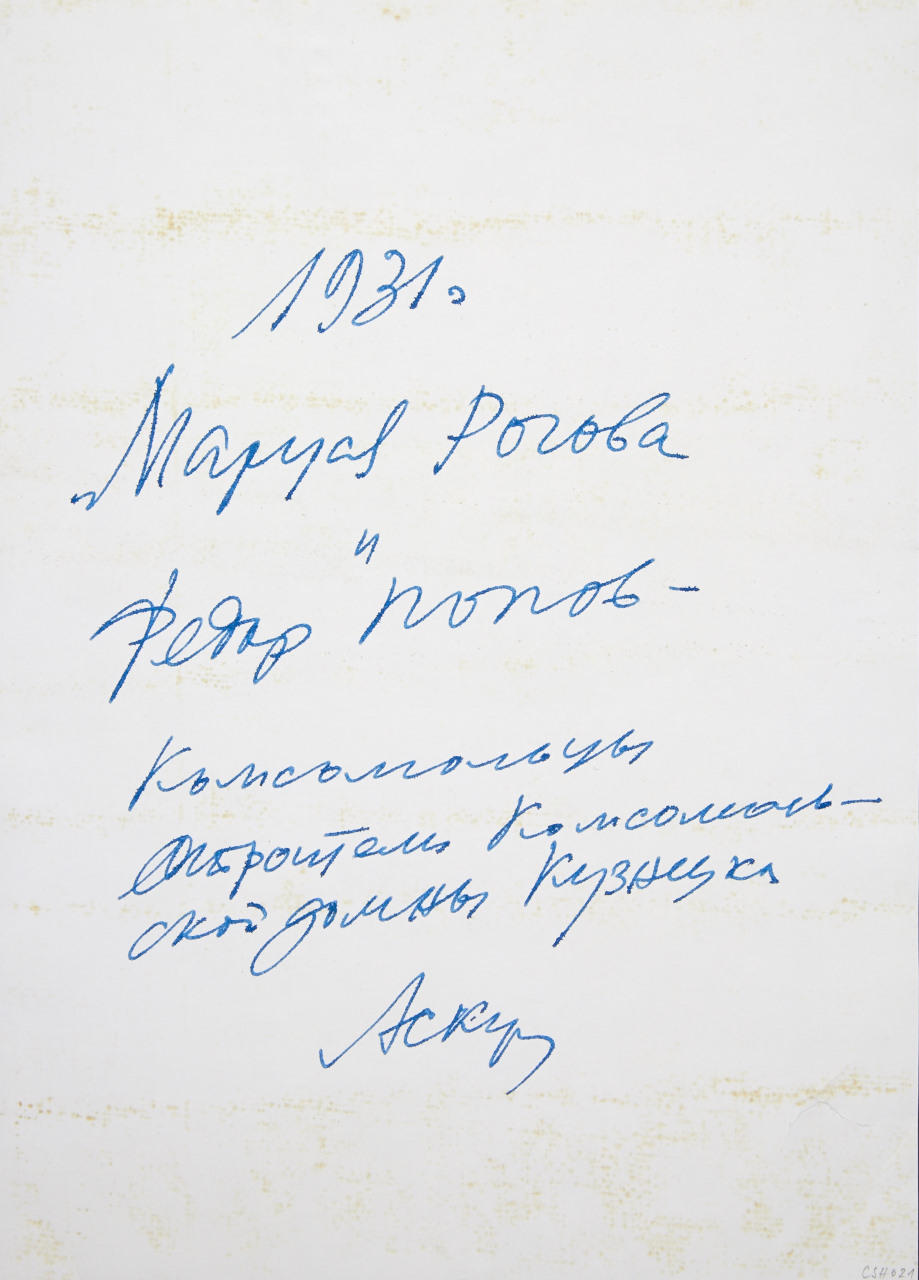 1931г
Маруся Рогова
и
Федор Попов -
Комсомольцы
строители Комсомоль-
ской домны Кузнецка
CSH 021